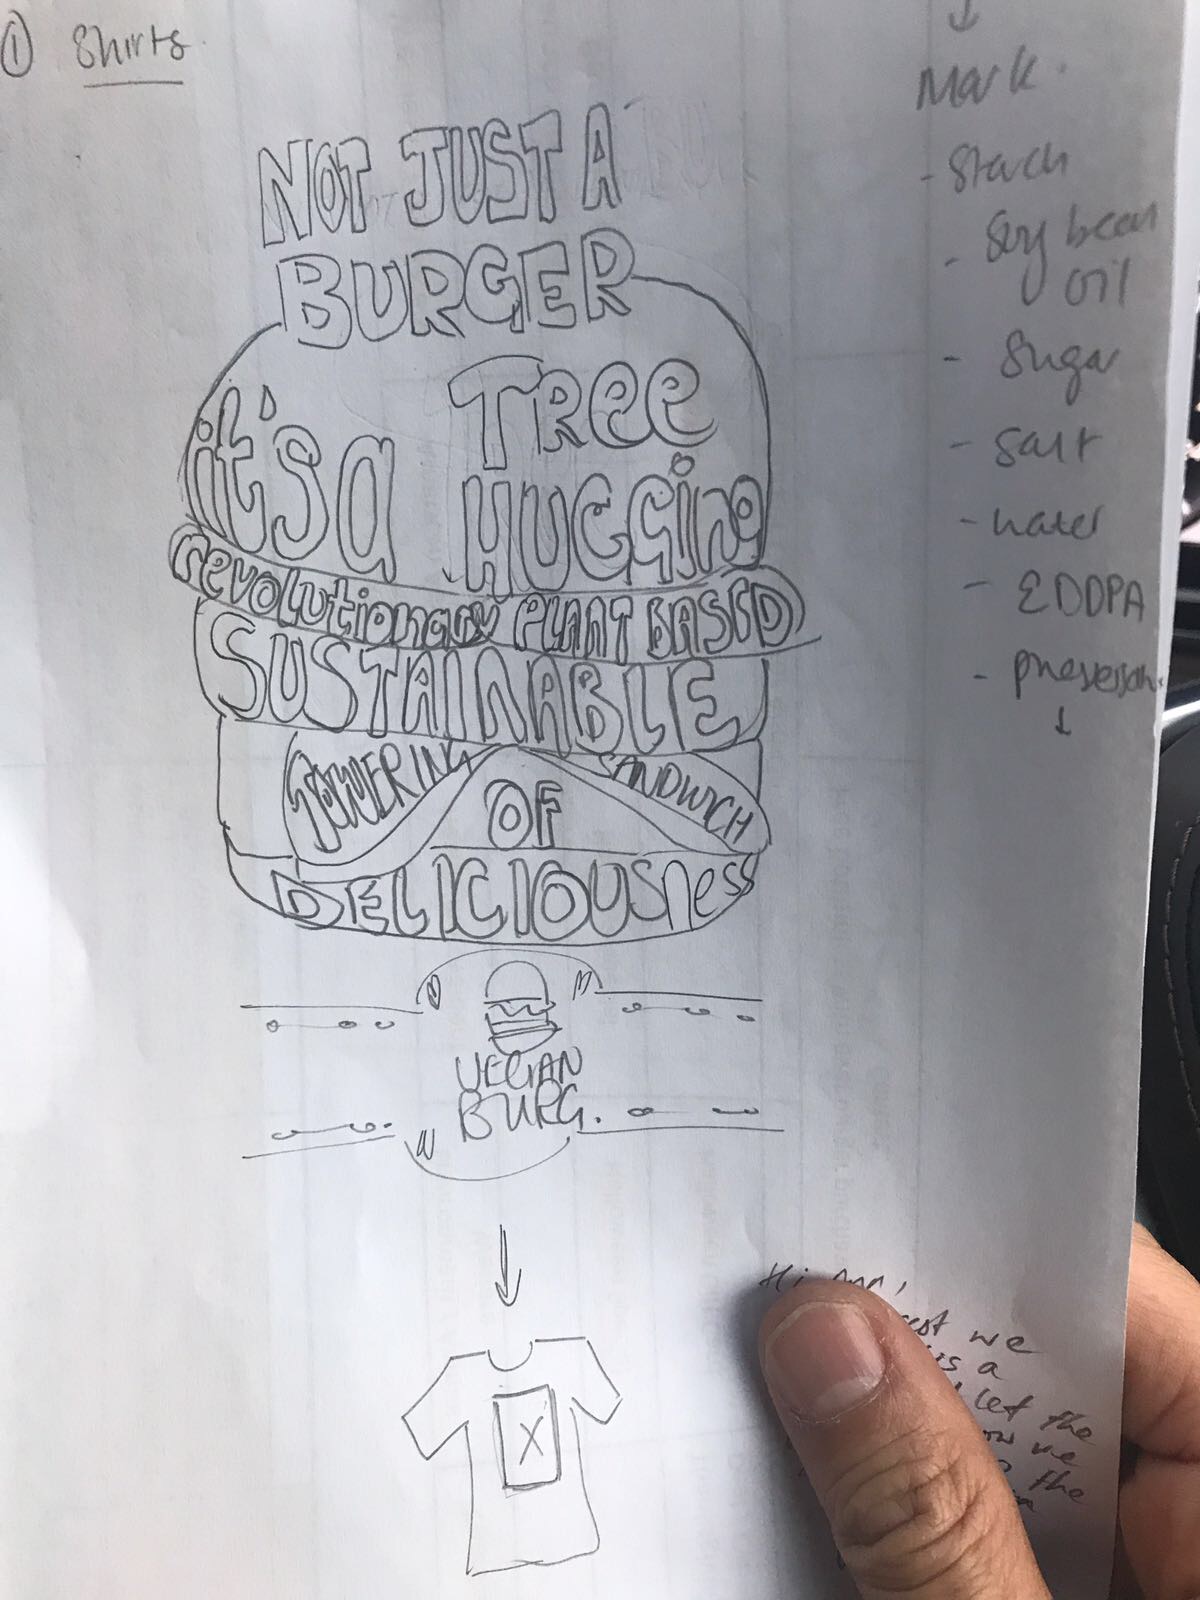 ① Shirts.
NOT JUST A
BURGER
it's a
TRee
HUGGing
revolutionary PLANT BASED
SUSTAINABLE
TOWERING
SANDWICH
OF
DELICIOUSness
VEGAN
BURG.
X
Mark.
- Starch
- Soy bean
oil
- Sugar
- Salt
- water
- EDDPA
Hi
we
a
let the
we
the